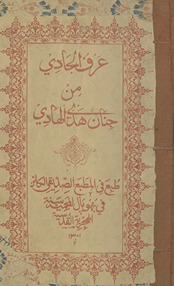 عرف الجادي
من
جنان هدي الهادي
طبع في المطبع الصديقي الكائن
في بهوپال المحمية
١٣٠١